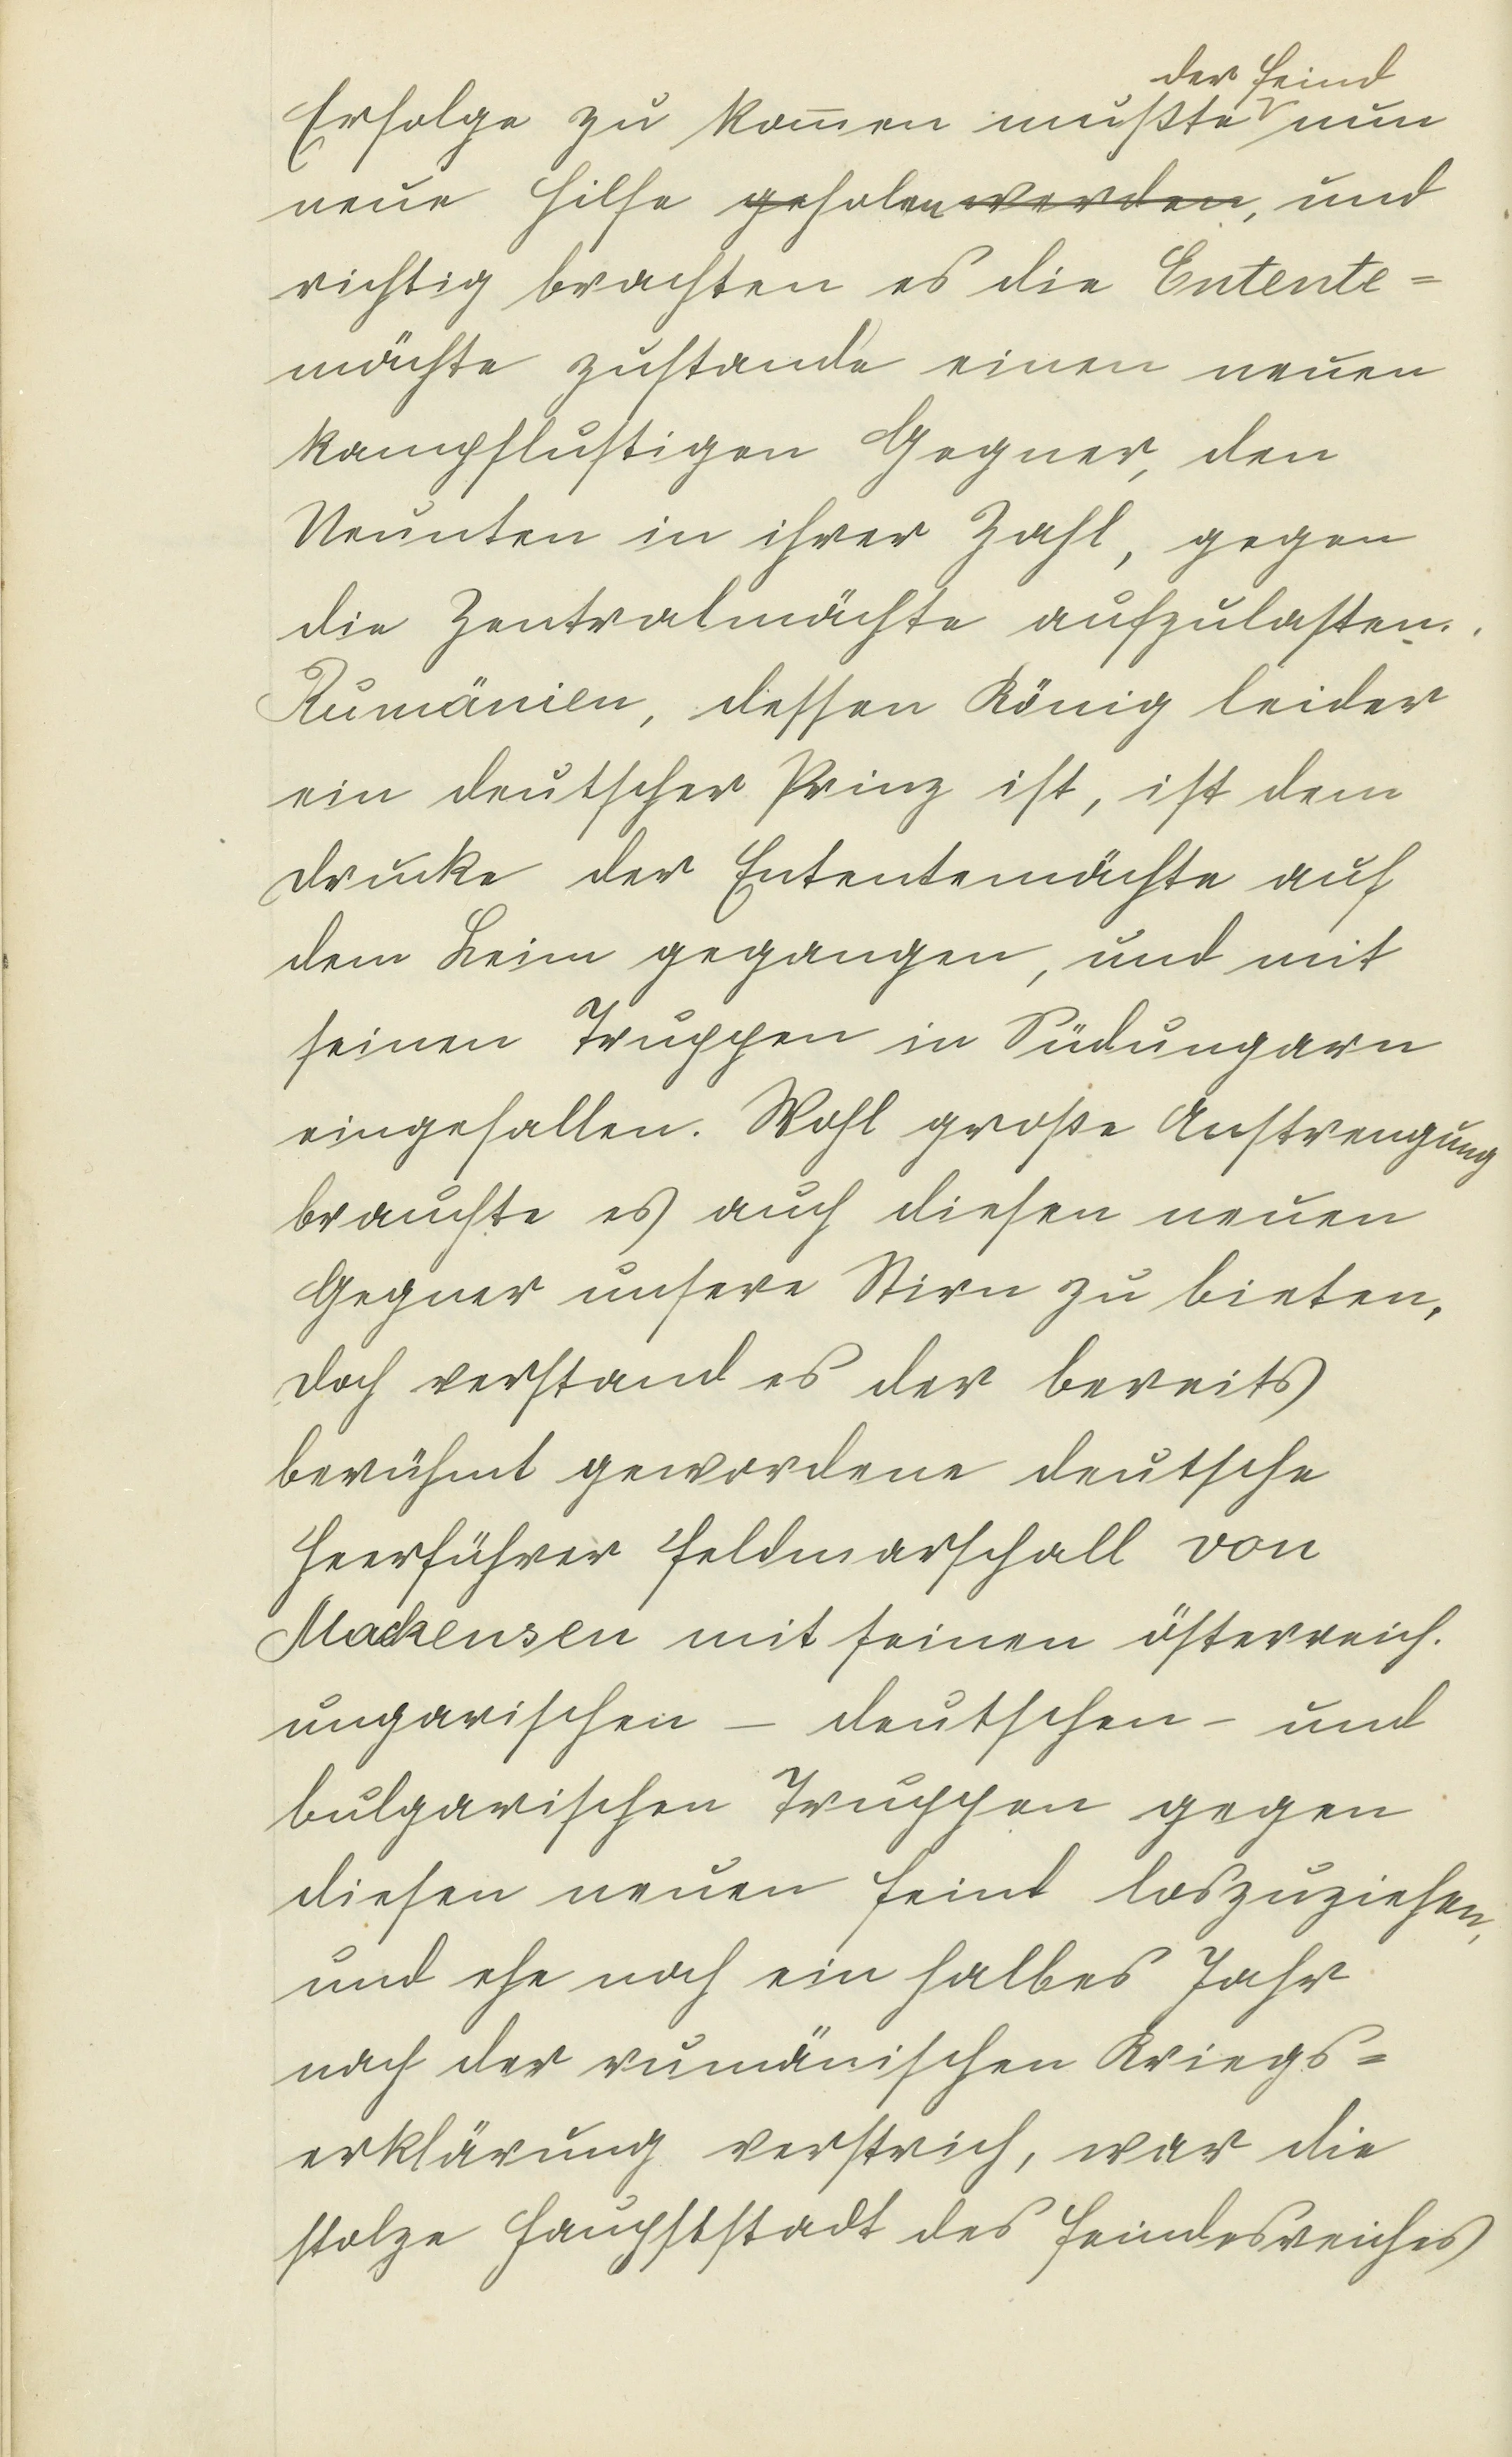 der Feind
Erfolge zu kom̅en mußte nun
neue Hilfe geholen werden, und
richtig brachten es die Entente=
mächte zustande einen neuen
kampflustigen Gegner, den
Neunten in ihrer Zahl, gegen
die Zentralmächte aufzulasten.
Rumänien, dessen König leider
ein deutscher Prinz ist, ist dem
Drucke der Ententemächte auf
dem Leim gegangen, und mit
seinen Truppen in Südungarn
eingefallen. Wohl große Anstrengung
brauchte es auch diesen neuen
Gegner unsere Stirn zu bieten,
doch verstand es der bereits
berühmt gewordene deutsche
Heerführer Feldmarschall von
Mackensen mit seinen österreich.
ungarischen – deutschen – und
bulgarischen Truppen gegen
diesen neuen Feind loszuziehen,
und ehe noch ein halbes Jahr
nach der rumänischen Kriegs=
erklärung verstrich, war die
stolze Hauptstadt des Feindesreiches